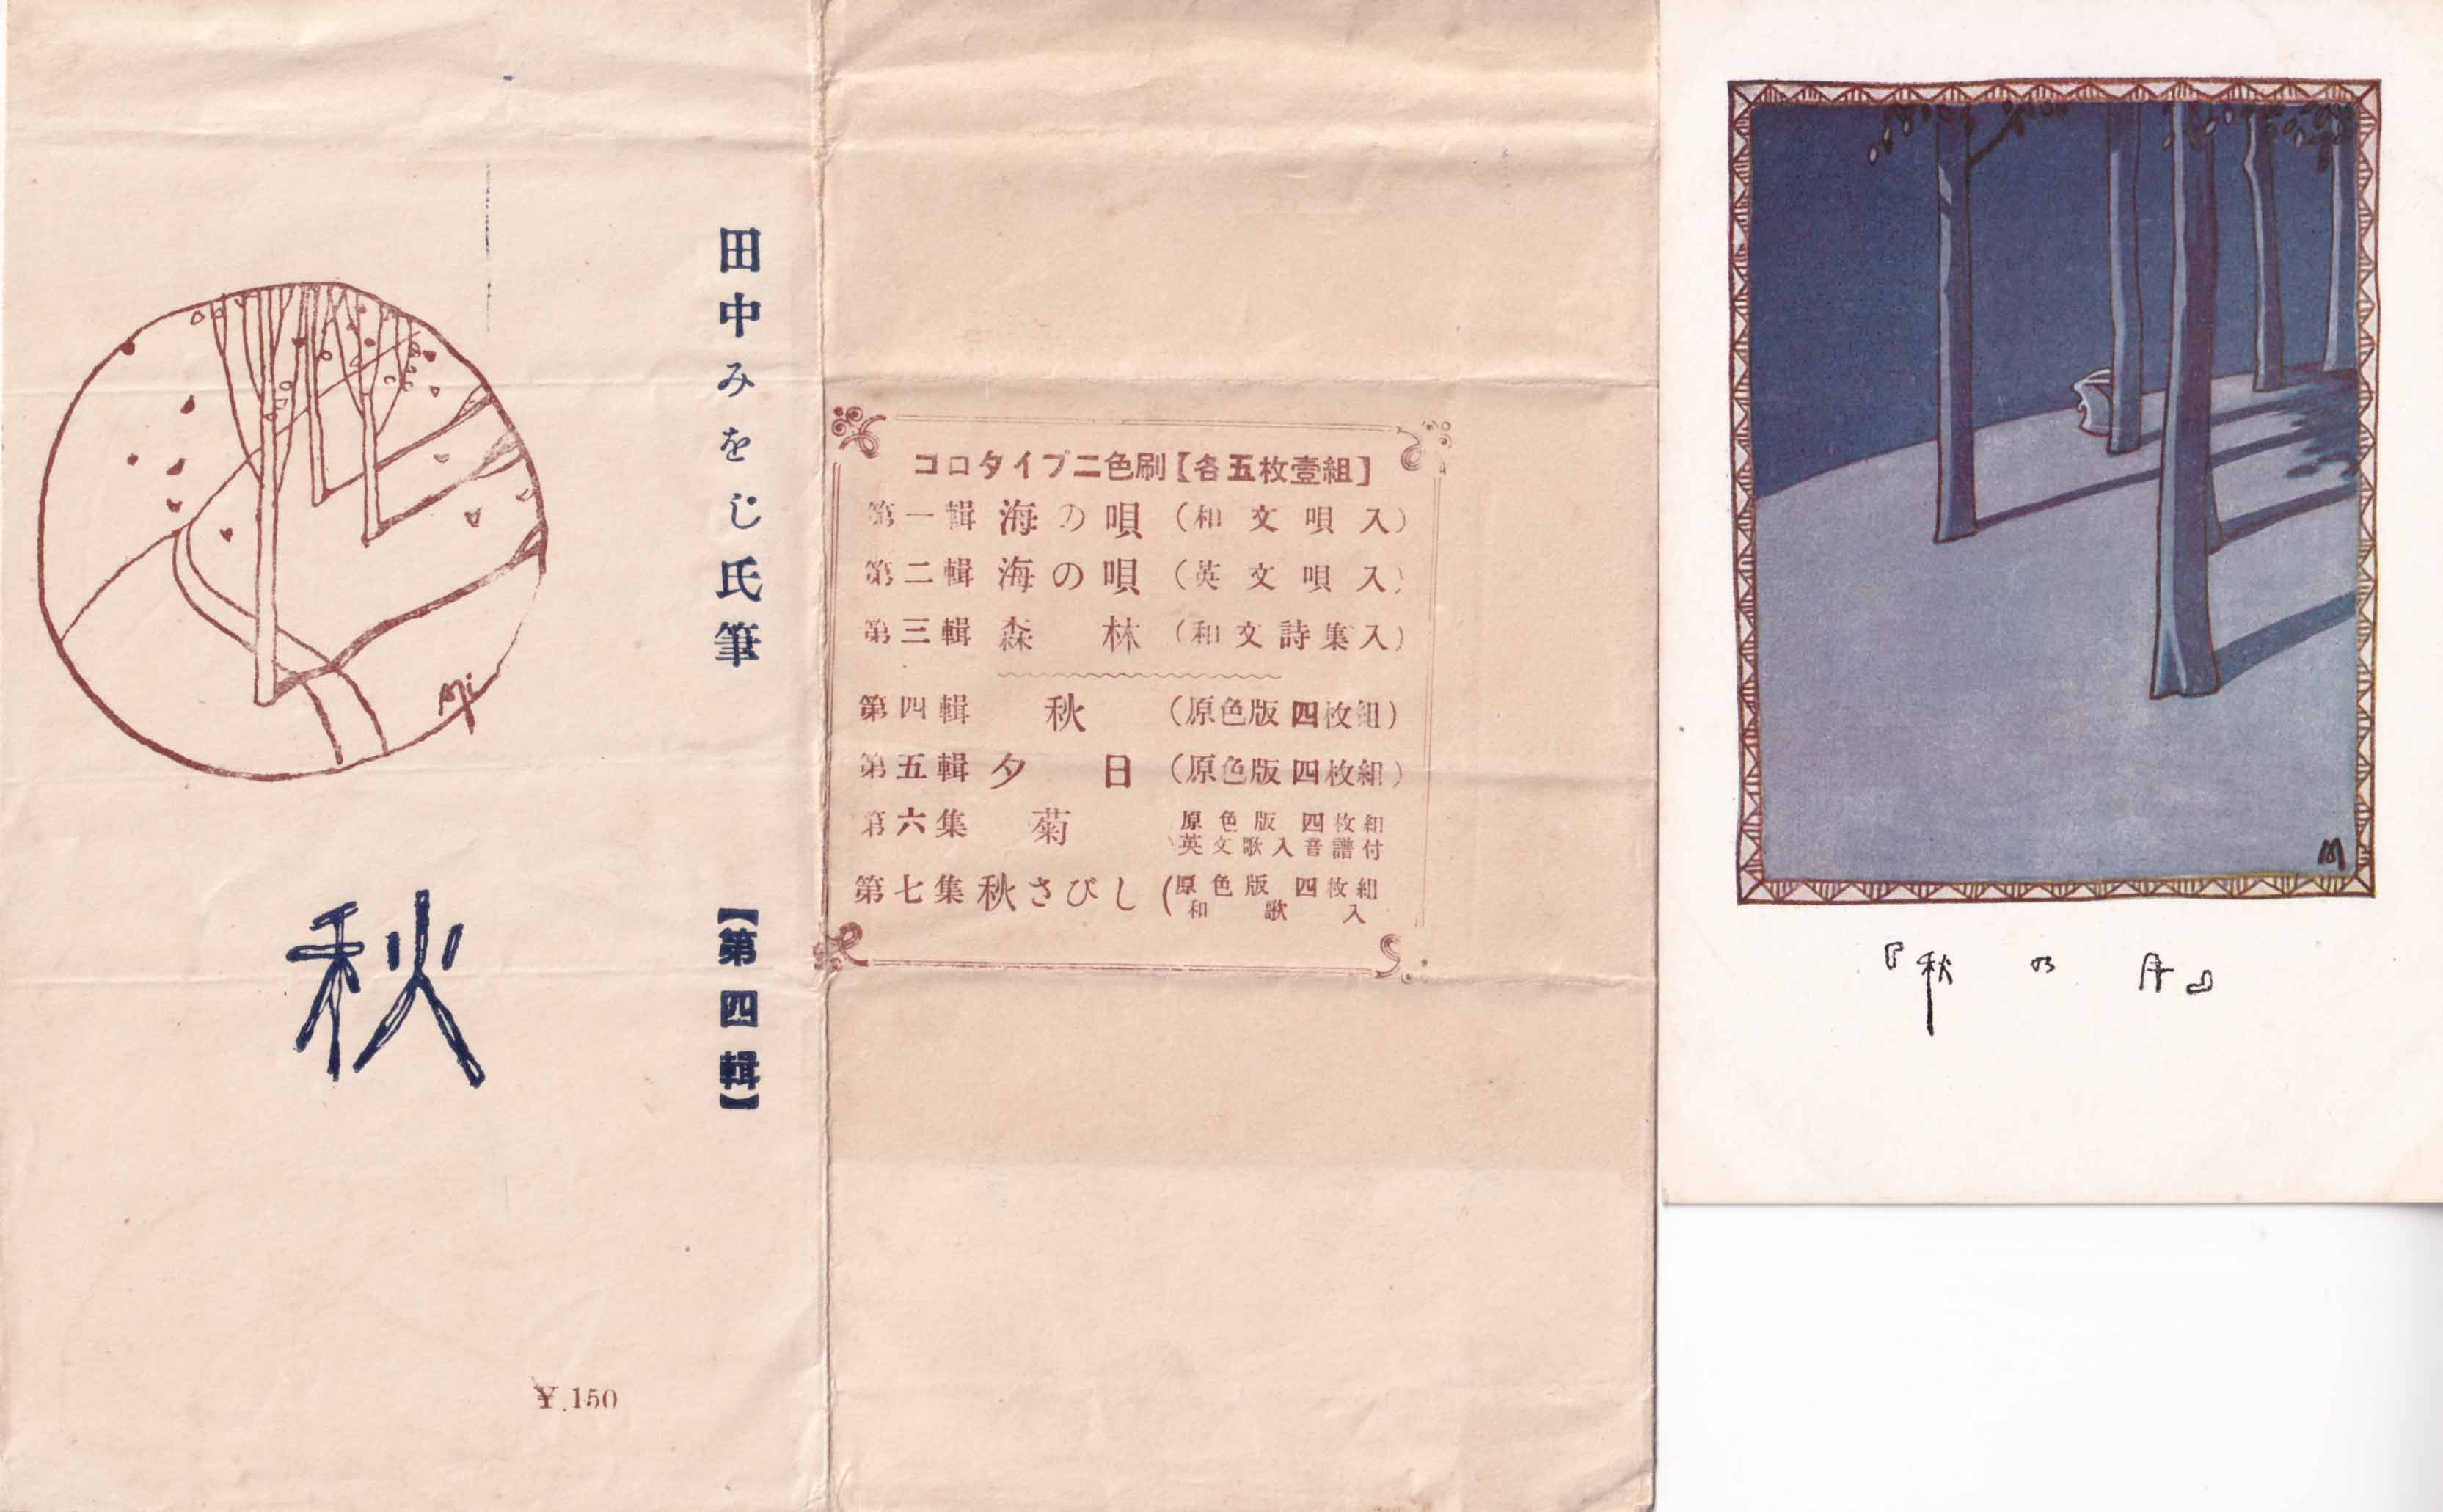 田中みをじ氏筆
【第四輯】
秋
Mi
¥.150
コロタイプ二色刷【各五枚壹組】
第一輯 海の唄 (和文唄入)
第二輯 海の唄 (英文唄入)
第三輯 森林 (和文詩集入)
第四輯 秋 (原色版四枚組)
第五輯 夕日 (原色版四枚組)
第六集 菊 原色版四枚組
英文歌入音譜付
第七集 秋さびし (原色版四枚組
和歌入
M
『秋の月』